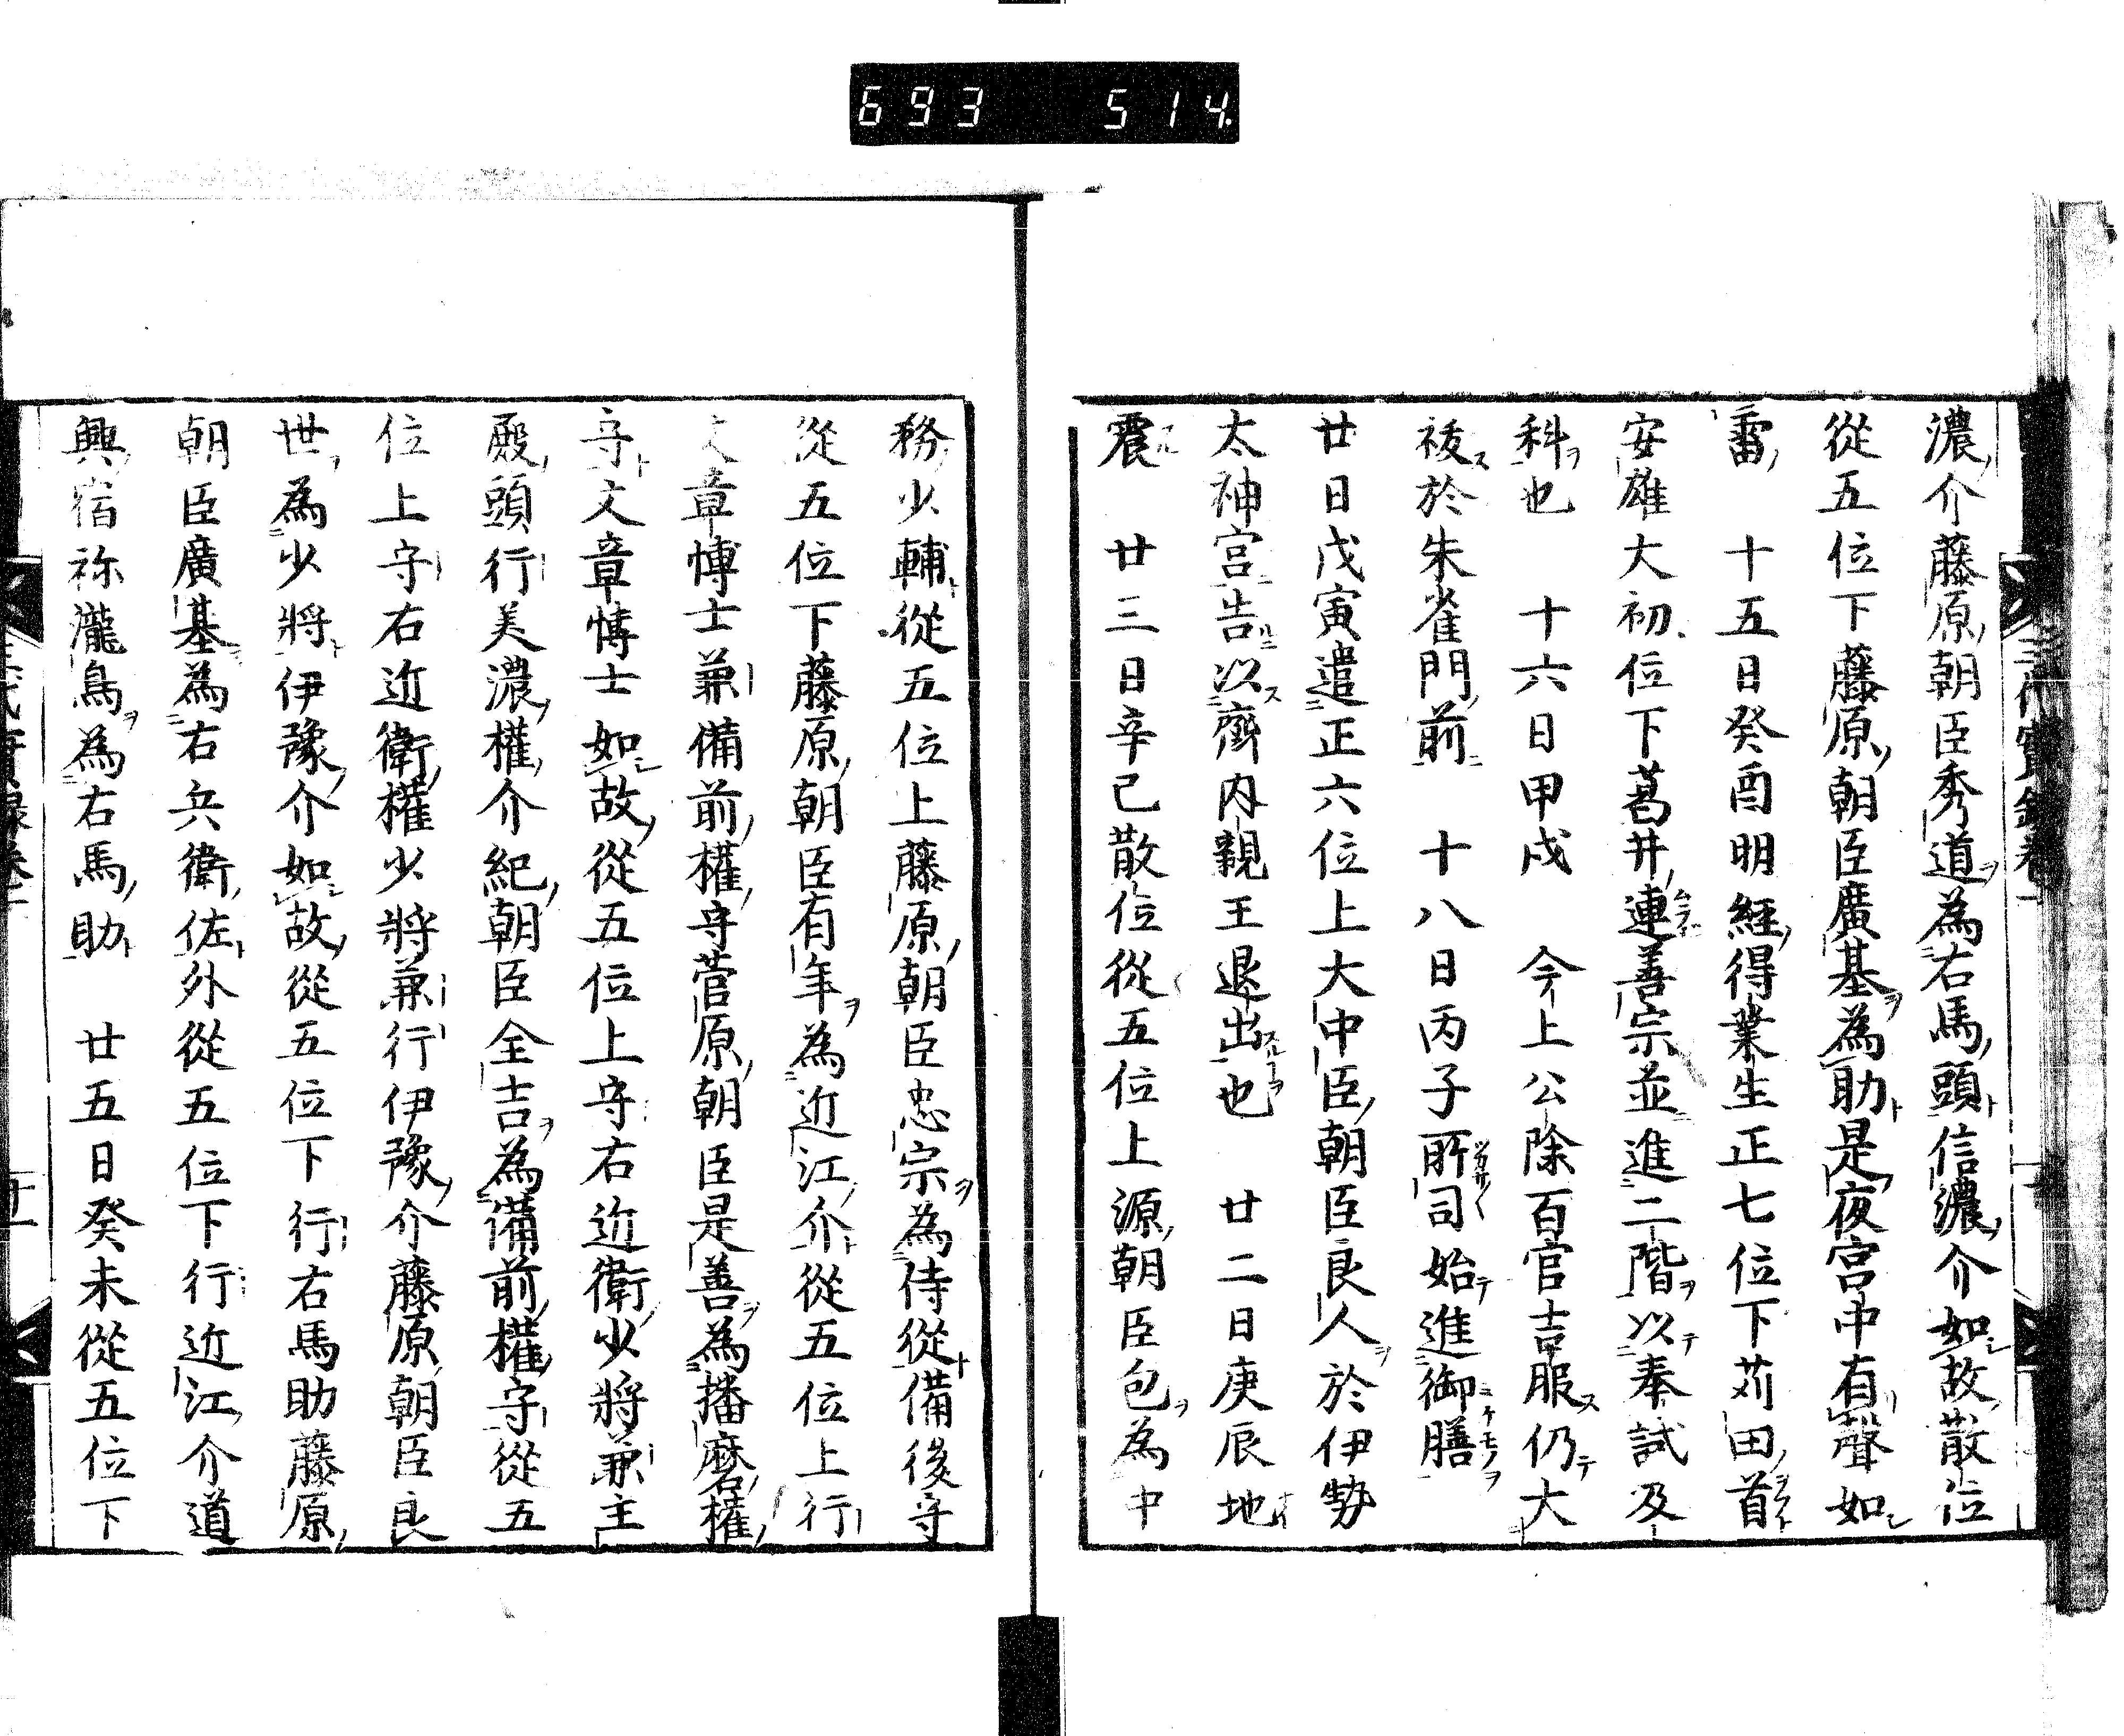 693 514
濃介藤原朝臣秀道為右馬頭信濃介如故散位
從五位下藤原朝臣廣基為助是夜宮中有聲如
雷　十五日癸酉明經得業生正七位下苅田首
安雄大初位下葛井連善宗並進二階以奉試及
科也　十六日甲戌　今上公除百官吉服仍大
祓於朱雀門前　十八日丙子所司始進御膳
廿日戊寅遣正六位上大中臣朝臣良人於伊勢
太神宮告以齊内親王退出也　廿二日庚辰地
震　廿三日辛己散位從五位上源朝臣包為中
務少輔從五位上藤原朝臣忠宗為侍從備後守
從五位下藤原朝臣有年為近江介從五位上行
文章博士兼備前權守菅原朝臣是善為播磨權
守文章博士如故從五位上守右近衛少將兼主
殿頭行美濃權介紀朝臣全吉為備前權守從五
位上守右近衛權少將兼行伊豫介藤原朝臣良
世為少將伊豫介如故從五位下行右馬助藤原
朝臣廣基為右兵衛佐外從五位下行近江介道
興宿祢瀧鳥為右馬助　廿五日癸未從五位下